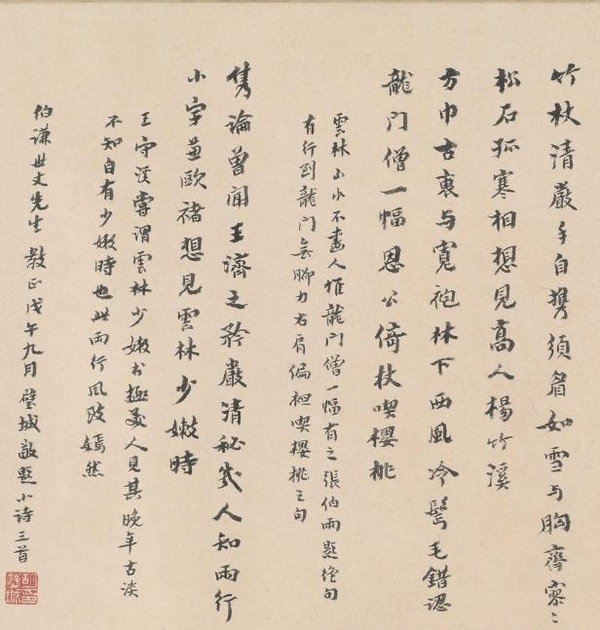 竹杖清嚴手自攜須眉如雪与胸齊寥〻
松石孤寒相想見高人楊竹溪
方巾古裹与寬袍林下西風冷鬂毛錯認
龍門僧一幅恩公倚杖喫櫻桃
雲林山水不畫人惟龍門僧一幅有之張伯雨題絕句
有行到龍門無腳力右肩偏袒喫櫻桃之句
雋論曾聞王濟之矜嚴清秘幾人知兩行
小字兼歐褚想見雲林少嫩時
王守溪嘗謂雲林少嫩書極美人見其晚年古淡
不知自有少嫩時也此兩行風致嫣然
伯謙世丈先生 教正戊午九月 璧城敬題小詩三首